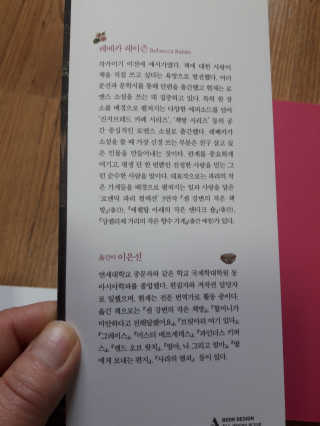 레베카 레이즌 Rebecca Raisin
작가이기 이전에 애서가였다. 책에 대한 사랑이
책을 직접 쓰고 싶다는 욕망으로 발전했다. 여러
문선과 문학지를 통해 단편을 출간했고 현재는 로
맨스 소설을 쓰는 데 집중하고 있다. 특히 한 장
소를 배경으로 펼쳐지는 다양한 에피소드를 담아
'진저브레드 카페 시리즈', '책방 시리즈' 등의 공
간 중심적인 로맨스 소설로 출간했다. 레베카가
소설을 쓸 때 가장 신경 쓰는 부분은 친구 삼고 싶
은 인물을 만들어내는 것이다. 관계를 중요하게
여기고, 평생 단 한 번뿐인 진정한 사랑을 믿는 그
런 순수한 사람들 말이다. 대표작으로는 파리의 작
은 가게들을 배경으로 펼쳐지는 일과 사랑을 담은
'로맨틱 파리 컬렉션' 3연작 『센 강변의 작은 책
방』(출간), 『에펠탑 아래의 작은 앤티크 숍』(출간),
『샹젤리제 거리의 작은 향수 가게』(출간 예정)가 있다.
옮긴이 이은선
연세대학교 중문과와 같은 학교 국제학대학원 동
아시아학과를 졸업했다. 편집자와 저작권 담당자
로 일했으며, 현재는 전문 번역가로 활동 중이다.
옮긴 책으로는 『센 강변의 작은 책방』, 『할머니가
미안하다고 전해달랬어요』, 『브릿마리 여기 있다』,
『그레이스』, 『미스터 메르세데스』, 『파인더스 키퍼
스』, 『엔드 오브 왓치』, 『엄마, 나 그리고 엄마』, 『딸
에게 보내는 편지』, 『사라의 열쇠』 등이 있다.
BOOK DESIGN